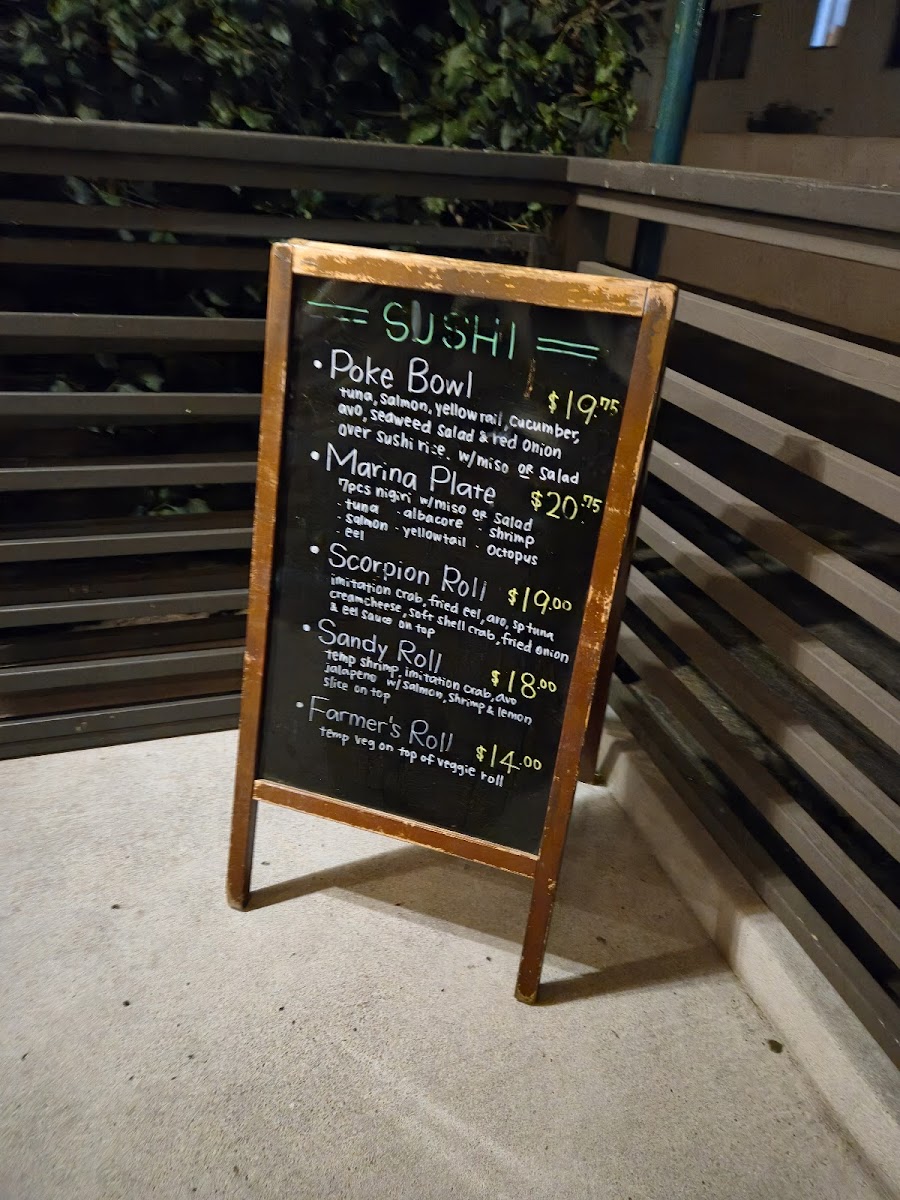 SUSHI
• Poke Bowl $19.75
tuna, salmon, yellowtail, cucumber,
avo, seaweed salad & red onion
over sushi rice. w/miso OR salad
• Marina Plate $20.75
7pcs nigiri w/miso OR salad
- tuna - albacore - shrimp
- salmon - yellowtail - octopus
- eel
• Scorpion Roll $19.00
imitation crab, fried eel, avo, sp tuna
creamcheese, soft shell crab, fried onion
& eel sauce on top
• Sandy Roll $18.00
temp shrimp, imitation crab, avo
jalapeno w/salmon, shrimp & lemon
slice on top
• Farmer's Roll $14.00
temp veg on top of veggie roll